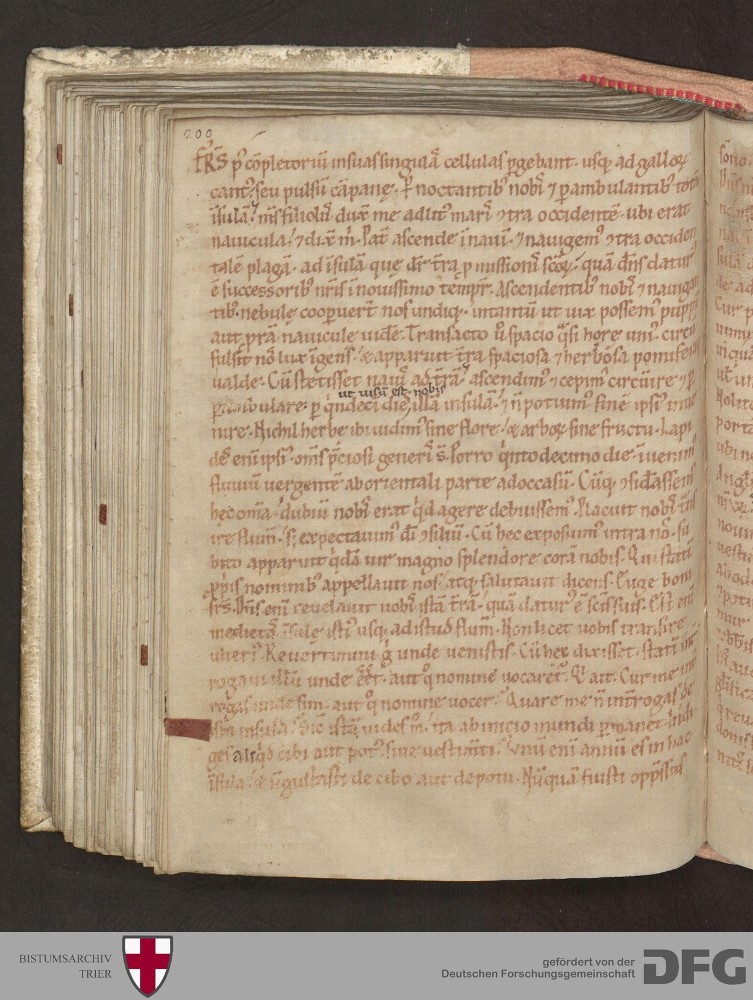 200
FR̄S p̄ cōpletoriū in suas singulā cellulas p̱gebant · usq; ad gallor̄
cant᷒ ? seu pulsū cāpanę · P noctantib; nob᷒ ⁊ p̱ambulantib; totā
īsulā ? m̄s filiol᷒ dux̄ me adlit᷒ mar᷒ ꝯtra occidentē · ubi erat
nauicula ? ⁊ dix̄ m̄ · Pat̄ ascende ī nauī · ⁊ nauigem᷒ ꝯtra occiden
talē plagā · ad īsulā que dr̄ t̄ra p̱missionis scōr̄ · quā dn̄s datur᷒
ē successorib; nr̄is ī nouissimo tēpr̄ · Ascendentib; nob᷒ ⁊ nauigan
tib; nebulę cooperuer̄t nos undiq; · intantū ut uix possem᷒ puppī
aut prā nauicule uidē · Transacto u᷒ spacio q̄si hore uni᷒ · circū
fulsit nos lux īgens · & apparuit t̄ra spaciosa ⁊ herbosa pomifera
ualde · Cū stetisset nauis ad t̄rā ? ascendim᷒ ⁊ cepim᷒ circūire ⁊ p̱
ut uisū est nobis
p̱ambulare · p̱ q̄ndeci dies illā insulā · ⁊ n̄ potuim᷒ finē ipsi᷒ inue
nire · Nichil herbe ibi uidim᷒ sine flore · & arbor̄ sine fructu · Lapi
des enī ipsi᷒ · om̄s p̄ciosi generis s̄ · Porro q̄nto decimo die · īuenim᷒
fluuiū uergentē ab orientali parte ad occasū · Cūq; ꝯsidassem᷒
hęc om̄a · dubiū nobis erat q̄d agere debuissem᷒ · Placuit nobis t̄ns
ire flum̄ · s; expectauim᷒ dī ꝯsiliū · Cū hec exposuim᷒ intra nos · su
bito apparuit q̄dā uir magno splendore corā nobis · Qui statī
p̱p̱iis nominib; appellauit nos · atq; salutauit dicens · Euge boni
fr̄s · Dn̄s enī reuelauit uobis istā t̄rā · quā datur᷒ ē sc̄is suis · Est enī
medietas īsule isti᷒ usq; ad istud flum̄ · Non licet uobis transire
ulteri᷒ · Reuertimini g̊ unde uenistis · Cū hec dixisset · statī int̄
rogaui illū unde ēēt · aut q̊ nomine uocaret᷒ · Q̄ ait · Cur me int̄
rogas unde sim · aut q̊ nomine uocer · Quare me n̄ int̄rogas de
ista insula · Sic istā uides m̊ · ita ab inicio mundi p̱manet · Indi
ges aliq̄d cibi aut pot᷒ · siue uestim̄ti · Vnū enī annū es in hac
īsula · & n̄ gustasti de cibo aut de potu · Nūquā fuisti opp̄ssus
BISTUMSARCHIV
TRIER
gefördert von der
Deutschen Forschungsgemeinschaft
DFG